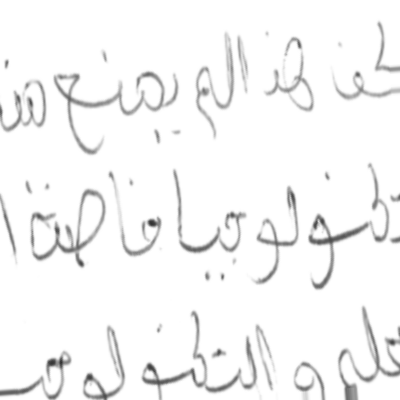 لكن هذا لم يمنع من
تكنولوجيا خاصة ا
علم و التكنولوجي